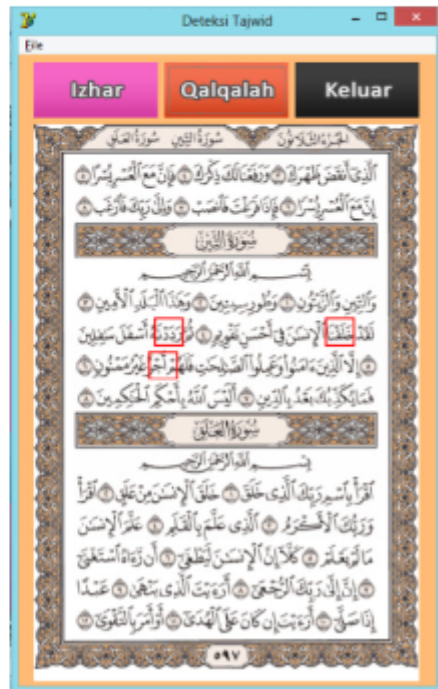 Deteksi Tajwid
File
Izhar Qalqalah Keluar
الجزء الثلاثون سورة التين سورة العلق
الَّذِي أَنقَضَ ظَهْرَكَ ٣ وَرَفَعْنَا لَكَ ذِكْرَكَ ٤ فَإِنَّ مَعَ الْعُسْرِ يُسْرًا ٥
إِنَّ مَعَ الْعُسْرِ يُسْرًا ٦ فَإِذَا فَرَغْتَ فَانصَبْ ٧ وَإِلَىٰ رَبِّكَ فَارْغَب ٨
سُورَةُ التِّينِ
بِسْمِ اللَّهِ الرَّحْمَٰنِ الرَّحِيمِ
وَالتِّينِ وَالزَّيْتُونِ ١ وَطُورِ سِينِينَ ٢ وَهَٰذَا الْبَلَدِ الْأَمِينِ ٣
لَقَدْ خَلَقْنَا الْإِنسَٰنَ فِي أَحْسَنِ تَقْوِيمٍ ٤ ثُمَّ رَدَدْنَٰهُ أَسْفَلَ سَٰفِلِينَ
٥ إِلَّا الَّذِينَ ءَامَنُوا وَعَمِلُوا الصَّٰلِحَٰتِ فَلَهُمْ أَجْرٌ غَيْرُ مَمْنُونٍ ٦
فَمَا يُكَذِّبُكَ بَعْدُ بِالدِّينِ ٧ أَلَيْسَ اللَّهُ بِأَحْكَمِ الْحَٰكِمِينَ ٨
سُورَةُ الْعَلَقِ
بِسْمِ اللَّهِ الرَّحْمَٰنِ الرَّحِيمِ
اقْرَأْ بِاسْمِ رَبِّكَ الَّذِي خَلَقَ ١ خَلَقَ الْإِنسَٰنَ مِنْ عَلَقٍ ٢ اقْرَأْ
وَرَبُّكَ الْأَكْرَمُ ٣ الَّذِي عَلَّمَ بِالْقَلَمِ ٤ عَلَّمَ الْإِنسَٰنَ
مَا لَمْ يَعْلَمْ ٥ كَلَّا إِنَّ الْإِنسَٰنَ لَيَطْغَىٰ ٦ أَن رَّءَاهُ اسْتَغْنَىٰ
٧ إِنَّ إِلَىٰ رَبِّكَ الرُّجْعَىٰ ٨ أَرَءَيْتَ الَّذِي يَنْهَىٰ ٩ عَبْدًا
إِذَا صَلَّىٰ ١٠ أَرَءَيْتَ إِن كَانَ عَلَى الْهُدَىٰ ١١ أَوْ أَمَرَ بِالتَّقْوَىٰ ١٢
٥٩٧